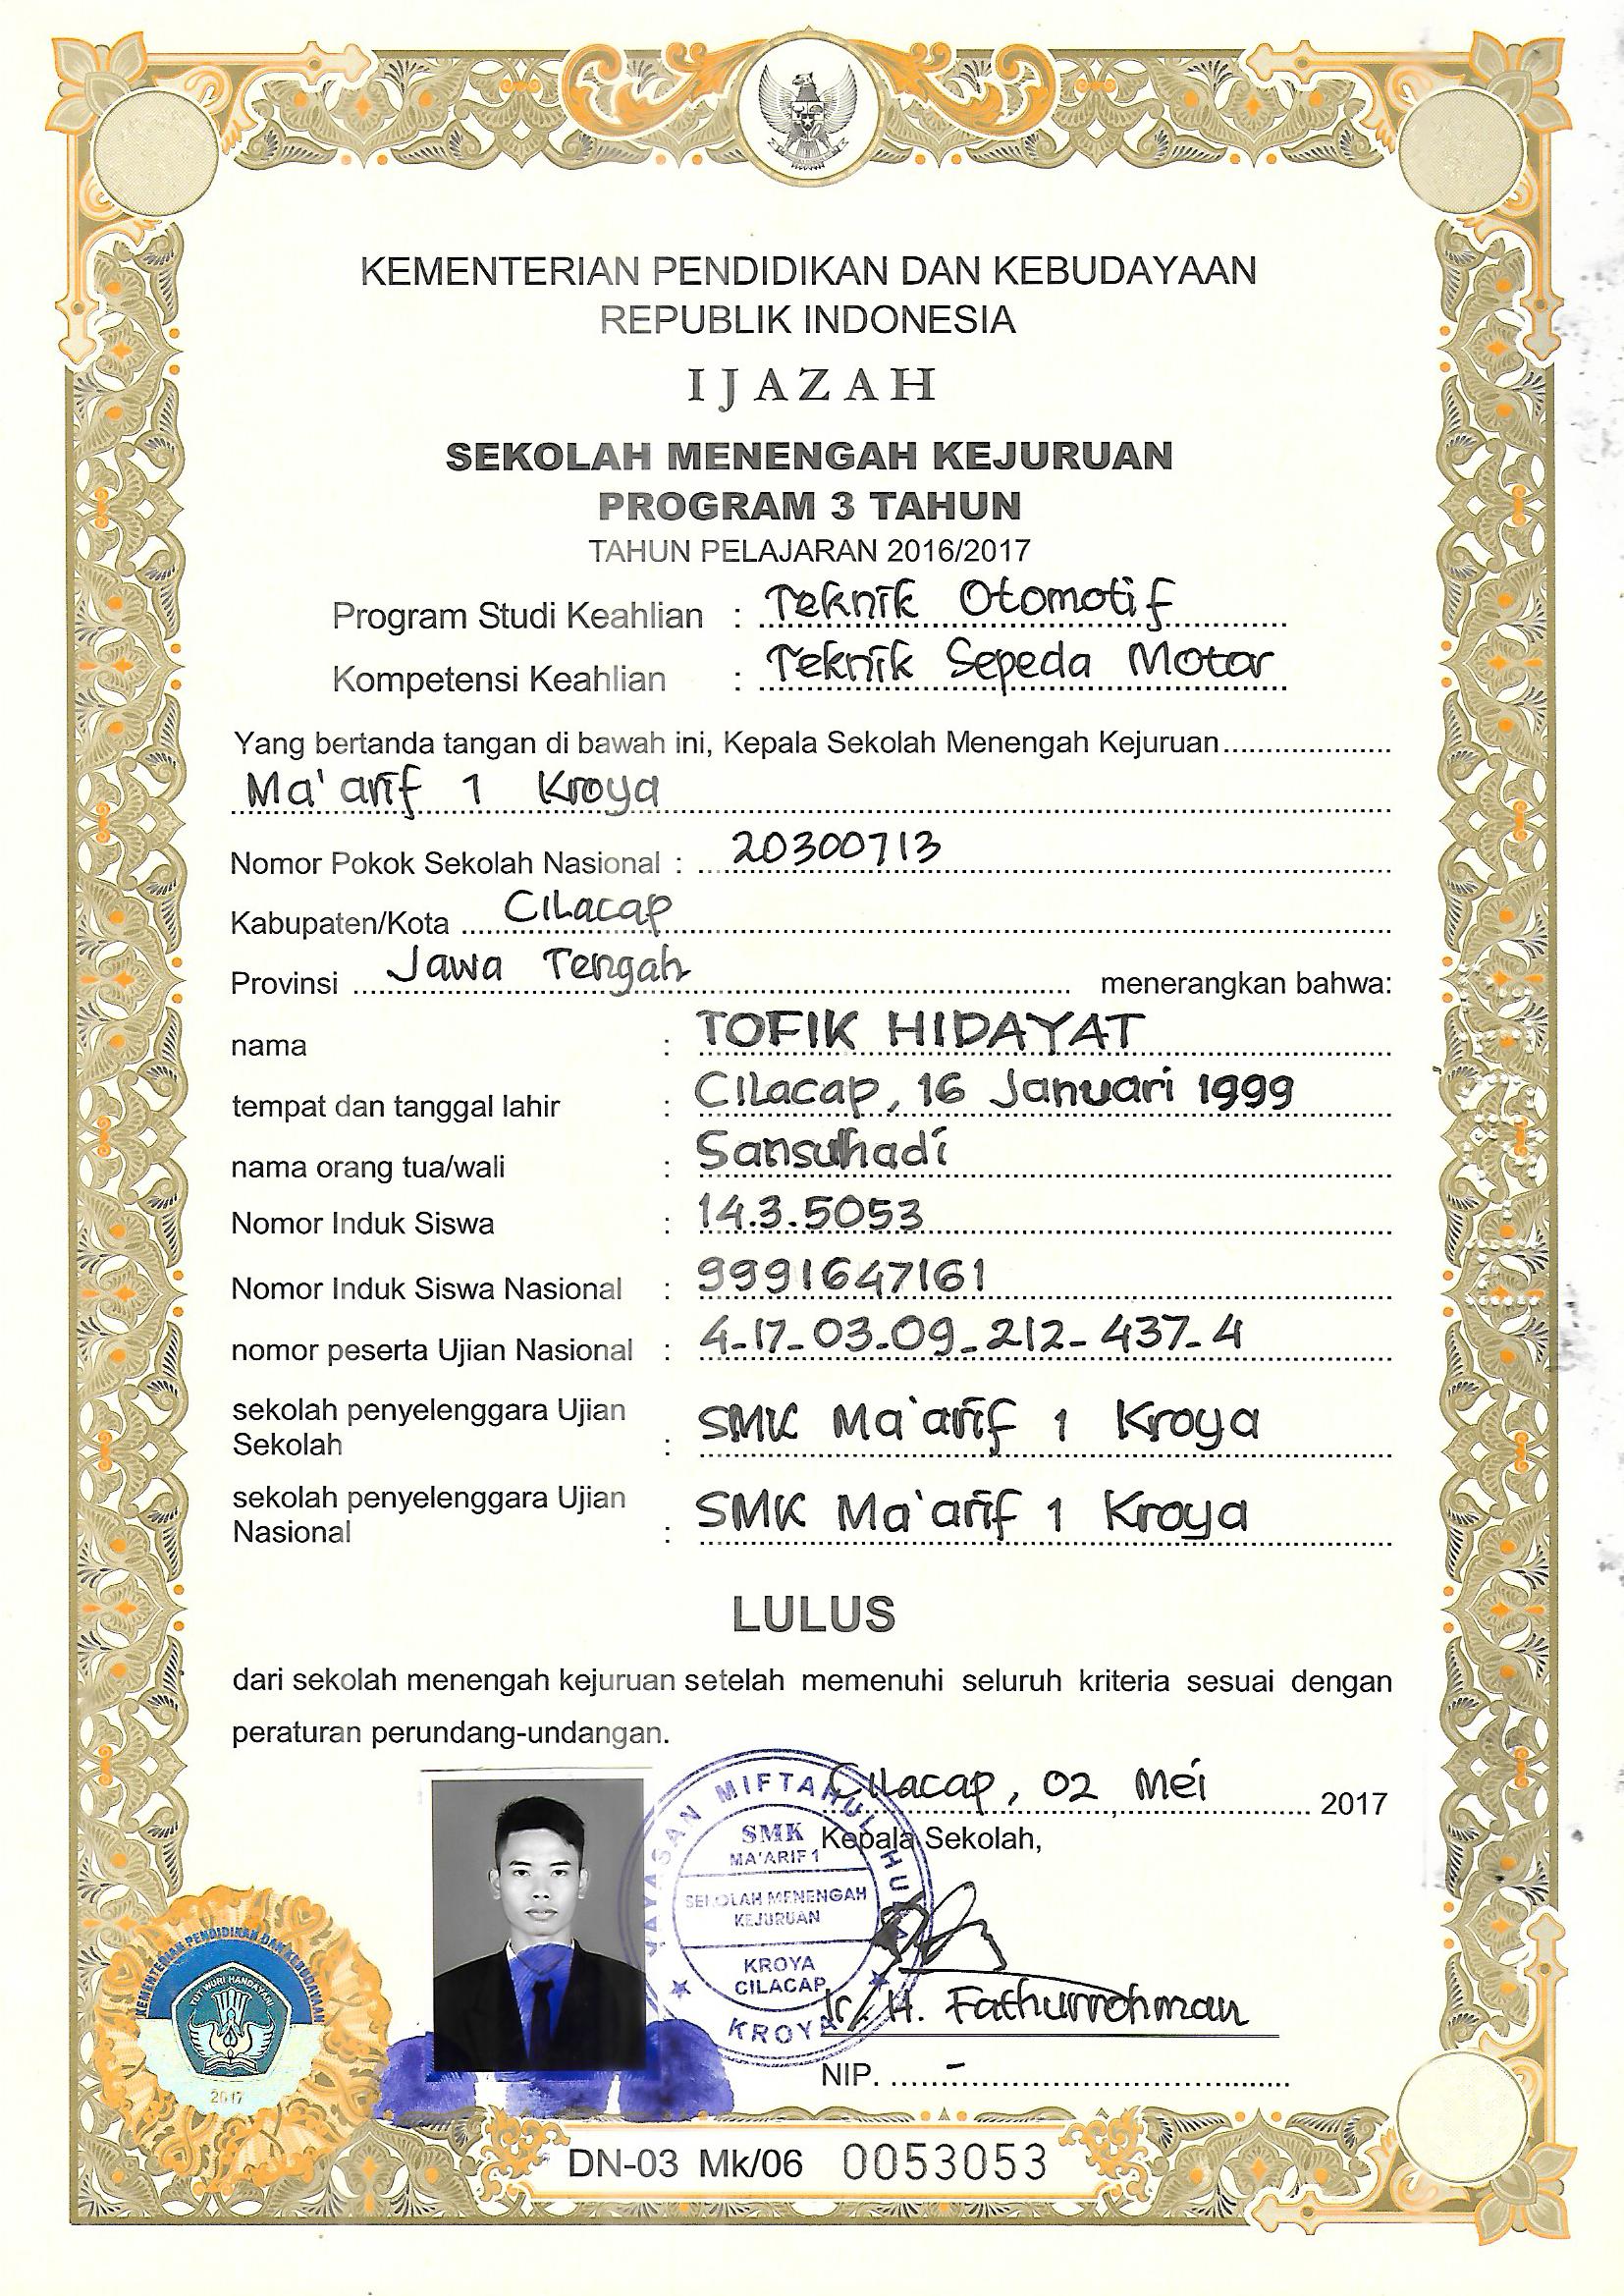 KEMENTERIAN PENDIDIKAN DAN KEBUDAYAAN
REPUBLIK INDONESIA
IJAZAH
SEKOLAH MENENGAH KEJURUAN
PROGRAM 3 TAHUN
TAHUN PELAJARAN 2016/2017
Program Studi Keahlian : Teknik Otomotif
Kompetensi Keahlian : Teknik Sepeda Motor
Yang bertanda tangan di bawah ini, Kepala Sekolah Menengah Kejuruan
Ma'arif 1 Kroya
Nomor Pokok Sekolah Nasional : 20300713
Kabupaten/Kota Cilacap
Provinsi Jawa Tengah menerangkan bahwa:
nama : TOFIK HIDAYAT
tempat dan tanggal lahir : Cilacap, 16 Januari 1999
nama orang tua/wali : Sansulhadi
Nomor Induk Siswa : 14.3.5053
Nomor Induk Siswa Nasional : 9991647161
nomor peserta Ujian Nasional : 4-17-03-09-212-437-4
sekolah penyelenggara Ujian
Sekolah : SMK Ma'arif 1 Kroya
sekolah penyelenggara Ujian
Nasional : SMK Ma'arif 1 Kroya
LULUS
dari sekolah menengah kejuruan setelah memenuhi seluruh kriteria sesuai dengan
peraturan perundang-undangan.
Cilacap, 02 Mei 2017
Kepala Sekolah,
YAYASAN MIFTAHUL HUDA
SMK
MA'ARIF 1
SEKOLAH MENENGAH
KEJURUAN
KROYA
CILACAP
KROYA
Ir. H. Fathurrohman
NIP. -
KEMENTERIAN PENDIDIKAN DAN KEBUDAYAAN
TUT WURI HANDAYANI
2017
DN-03 Mk/06 0053053